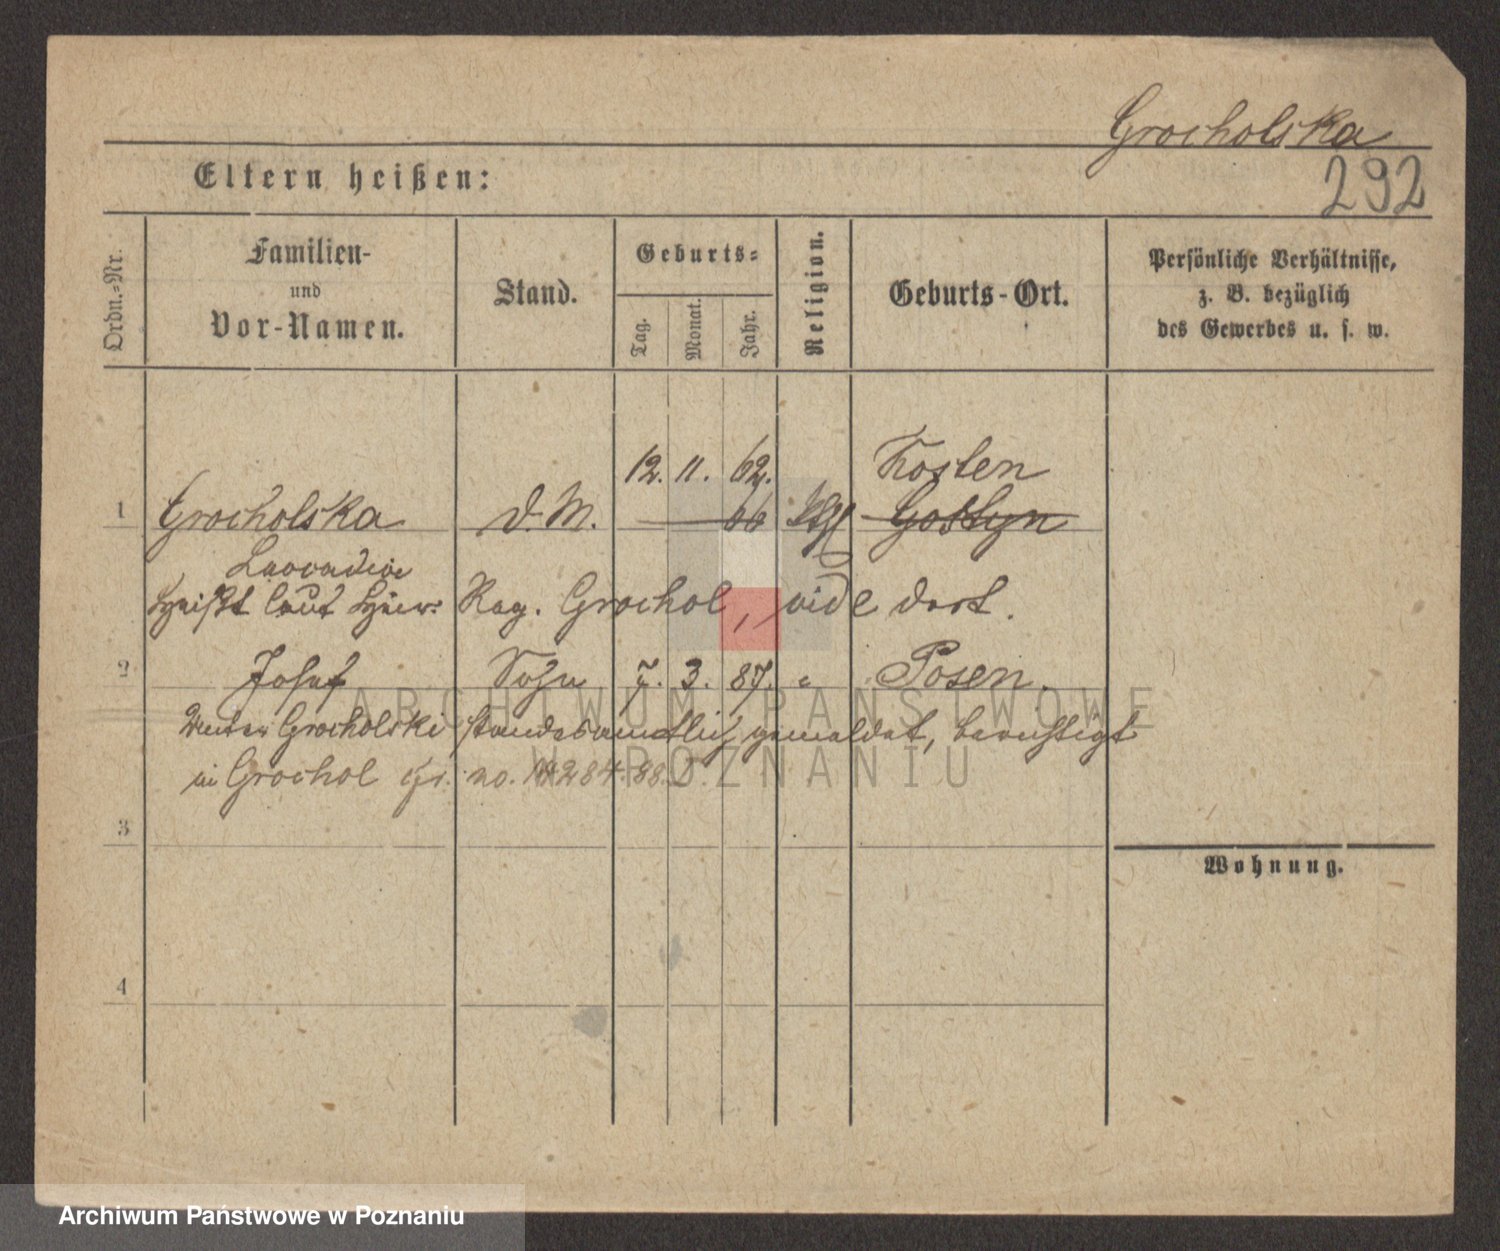 Grocholska
292
Eltern heißen:
Ordn.-Nr.
Familien-
und
Vor-Namen.
Stand.
Geburts-
Tag.
Monat.
Jahr.
Religion.
Geburts-Ort.
Persönliche Verhältnisse,
z. B. bezüglich
des Gewerbes u. s. w.
12. 11. 62. Kosten
1 Grocholska D. M. 66 Gostyn
Leocadia
Heißt laut Reg. Grochol, vide dort.
2 Josef Sohn 7. 3. 87. " Posen.
Unter Grocholski standesamtlich gemeldet, berichtigt
in Grochol no. 284.88.
3
Wohnung.
4
ARCHIWUM PAŃSTWOWE
W POZNANIU
Archiwum Państwowe w Poznaniu